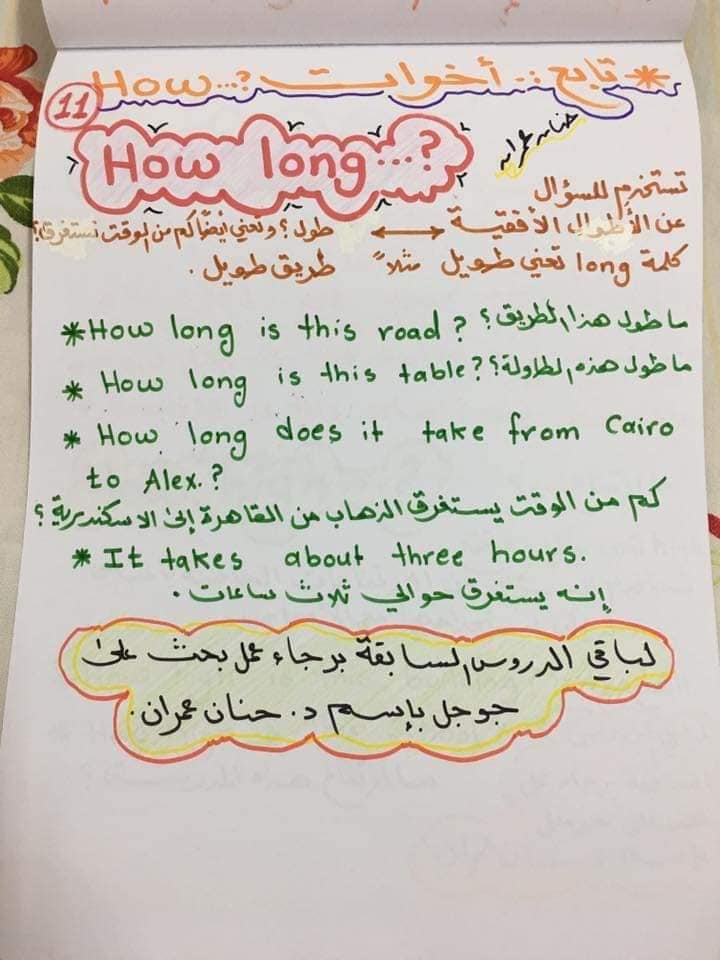 * تابع :. أخوات ?...How
11
How long...?
حنان عمران
تستخدم للسؤال
عن الأطوال الأفقية ⟷ طول؟ وتعني أيضًا كم من الوقت تستغرق؟
كلمة long تعني طويل مثلاً طريق طويل.
* How long is this road? ما طول هذا الطريق؟
* How long is this table? ما طول هذه الطاولة؟
* How long does it take from Cairo
to Alex.?
كم من الوقت يستغرق الذهاب من القاهرة إلى الاسكندرية؟
* It takes about three hours.
إنه يستغرق حوالي ثلاث ساعات.
لباقي الدروس السابقة برجاء عمل بحث على
جوجل بإسم د. حنان عمران.